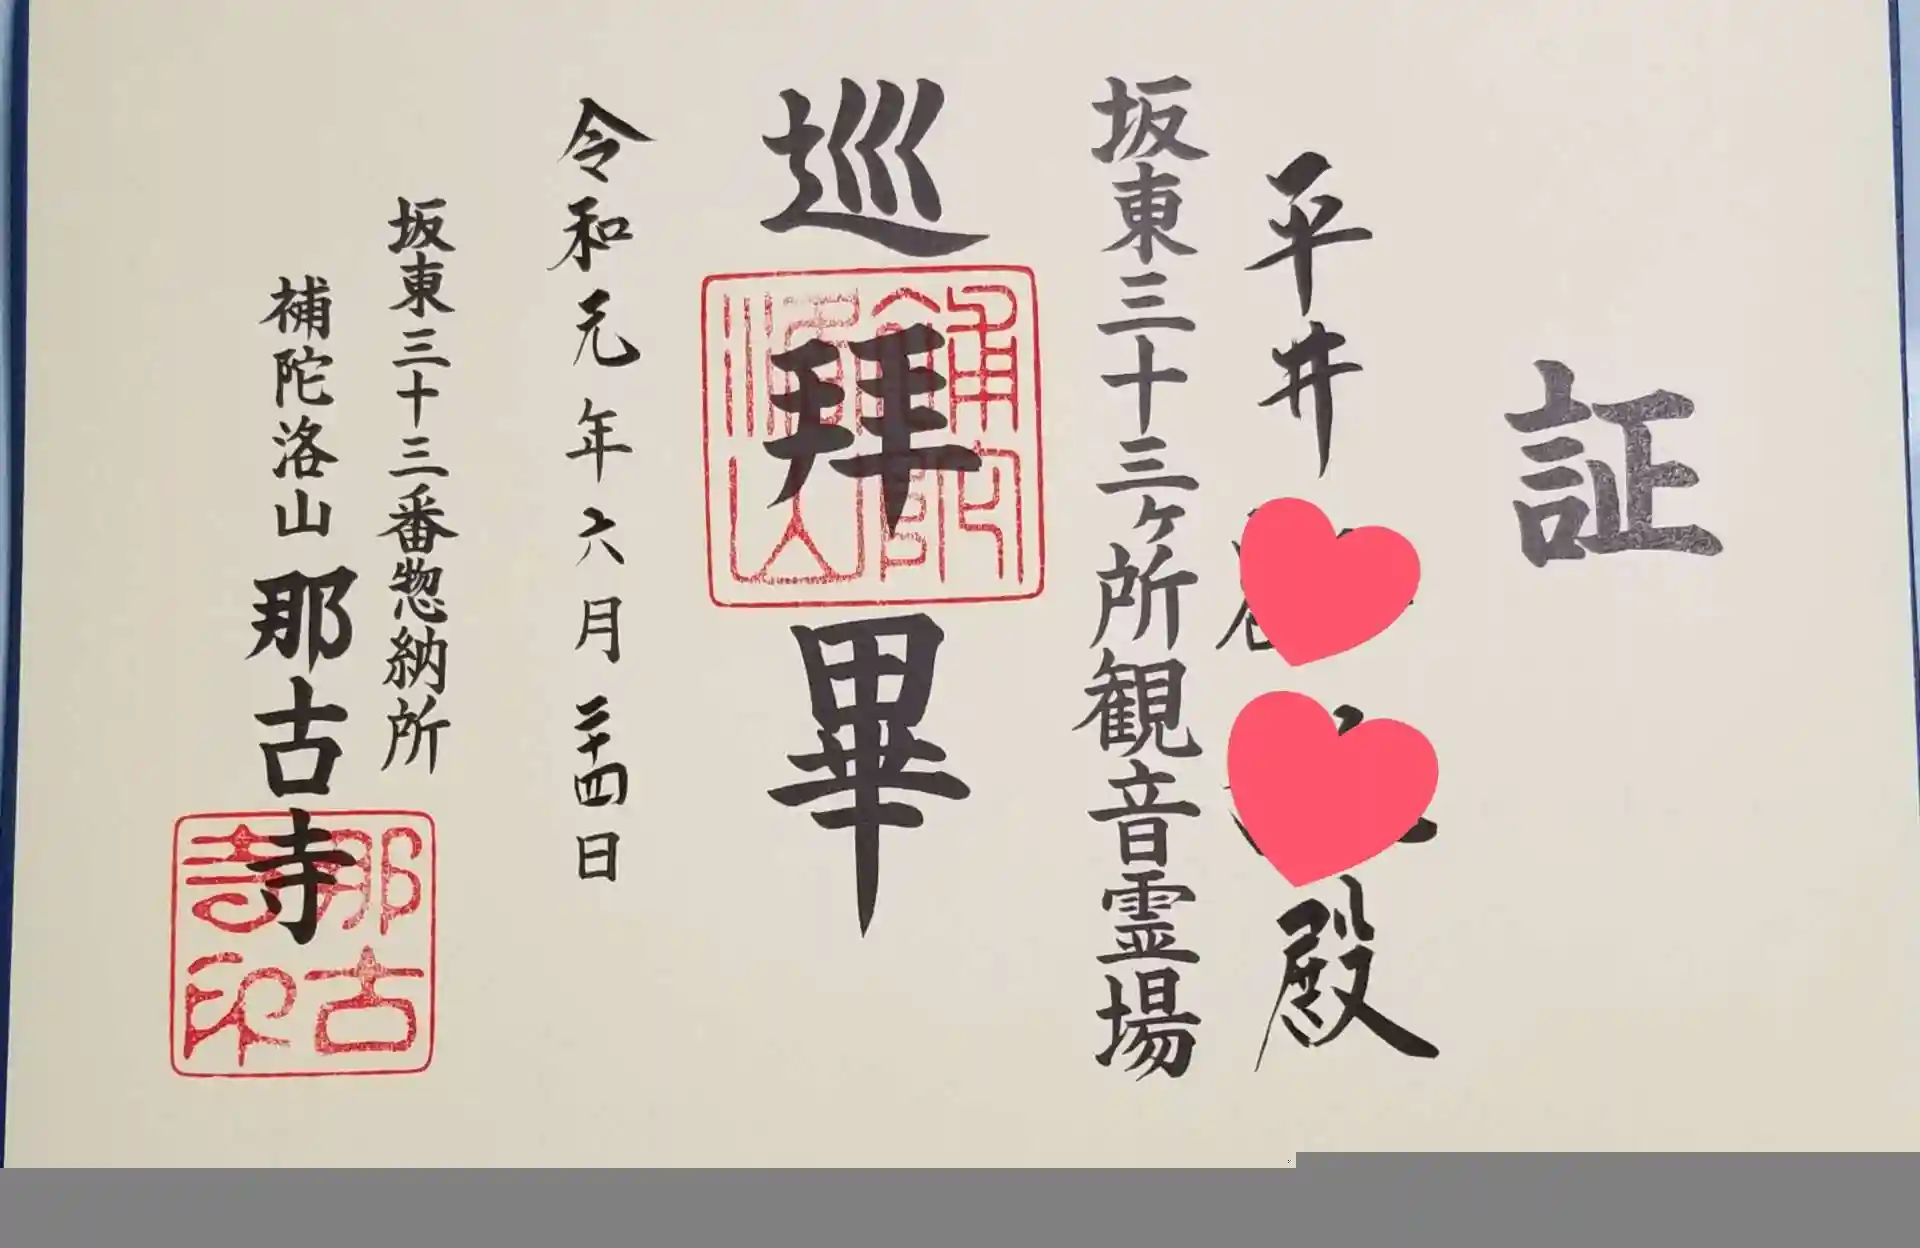 証
平井
殿
坂東三十三ヶ所観音霊場
巡拝畢
補陀洛山
令和元年六月二十四日
坂東三十三番惣納所
補陀洛山 那古寺
那古寺印